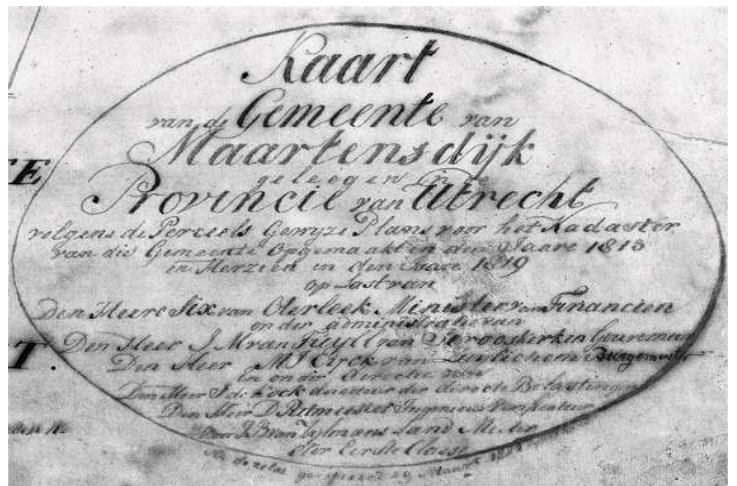 Kaart
van de Gemeente van
Maartensdijk
geleegen in de
Provincie van Utrecht
volgens de Perceels Gewyze Plans voor het Kadaster
van die Gemeente Opgemaakt in den Jaare 1818
en Herzien in den Jaare 1819
op Last van
Den Heere Six van Oterleek Minister van Financien
onder administratie van
Den Heer J M van Tuyll van Serooskerken Gouverneur
Den Heer M J Eyck van Zuylichem Burgemeester
En onder directie van
Den Heer J de directe Belastingen
Den Heer D Ingenieur Verificateur
Door J B Land Meeter
der Eerste Classe
29
E
T.